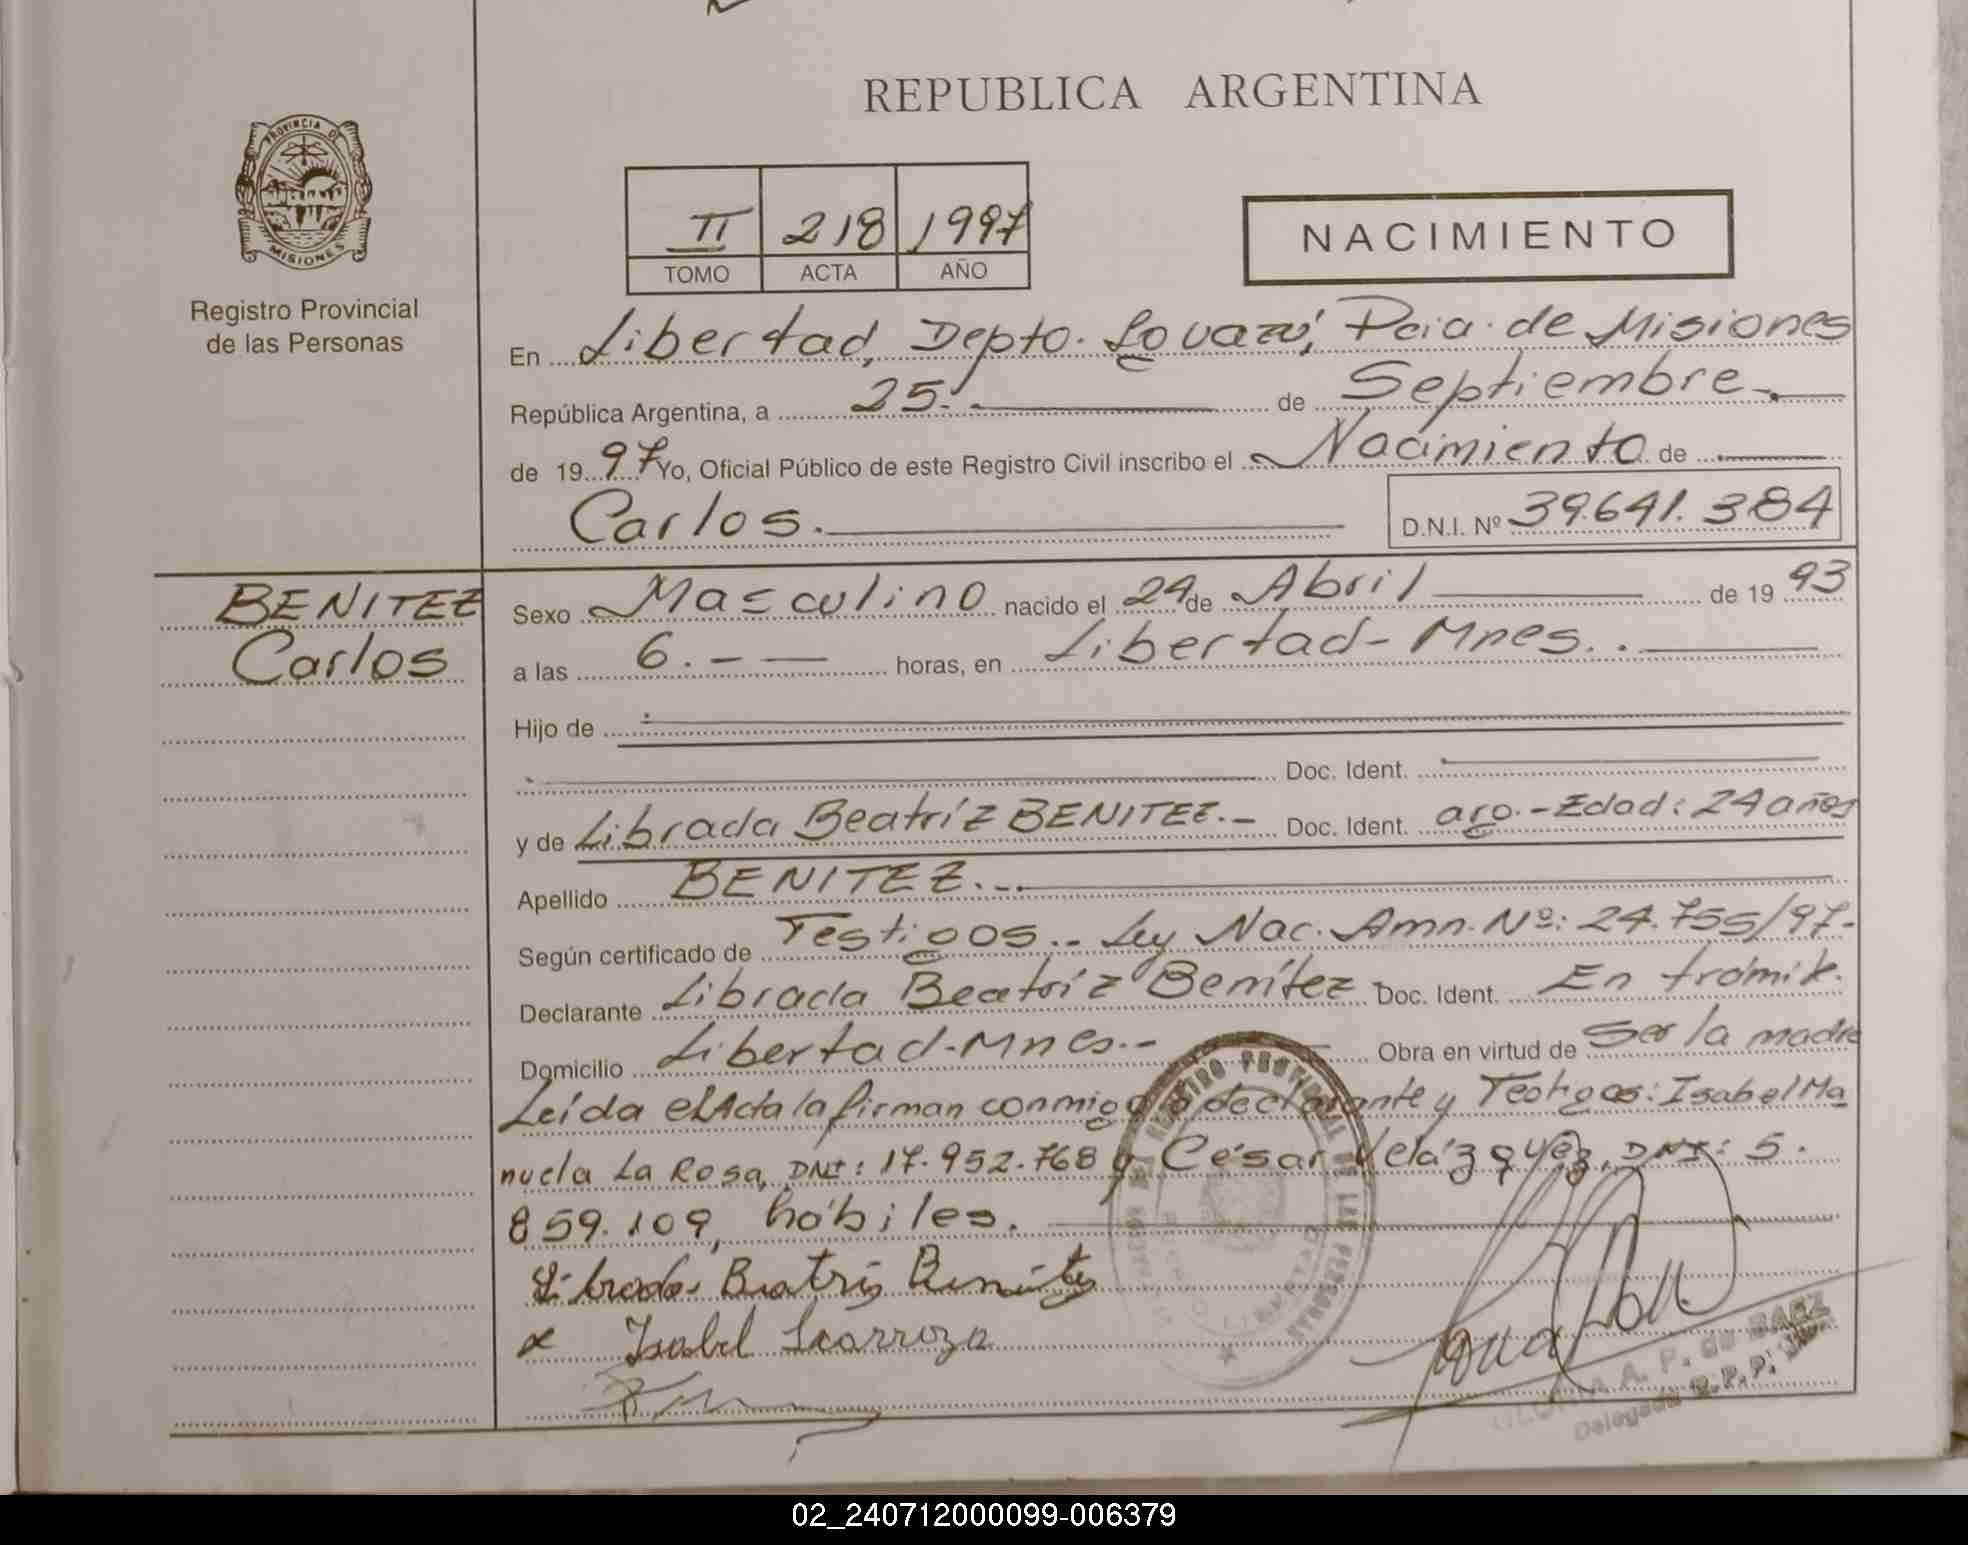 REPUBLICA ARGENTINA
PROVINCIA DE
MISIONES
Registro Provincial
de las Personas
II 218 1997
TOMO ACTA AÑO
NACIMIENTO
En Libertad, Depto. Iguazú, Pcia. de Misiones
República Argentina, a 25.- de Septiembre.-
de 1997 Yo, Oficial Público de este Registro Civil inscribo el Nacimiento de
Carlos. D.N.I. Nº 39.641.384
BENITEZ
Carlos
Sexo Masculino nacido el 24 de Abril de 1993
a las 6.- horas, en Libertad-Mnes..
Hijo de
Doc. Ident.
y de Librada Beatríz BENITEZ.- Doc. Ident. arg.-Edad: 24 años
Apellido BENITEZ.-.
Según certificado de Testigos.- Ley Nac. Amn. Nº: 24.755/97.-
Declarante Librada Beatríz Benítez Doc. Ident. En trámit.
Domicilio Libertad-Mnes.- Obra en virtud de Ser la madre
Leída el Acta la firman conmigo la declarante y Testigos: Isabel Ma
nuela La Rosa, DNI: 17.952.768 y César Velázquez, DNI: 5.
859.109, hábiles.
Librada Beatris Benites
x Isabel Larroza
A. P. de BAEZ
Delegada R.P.P.
02_240712000099-006379